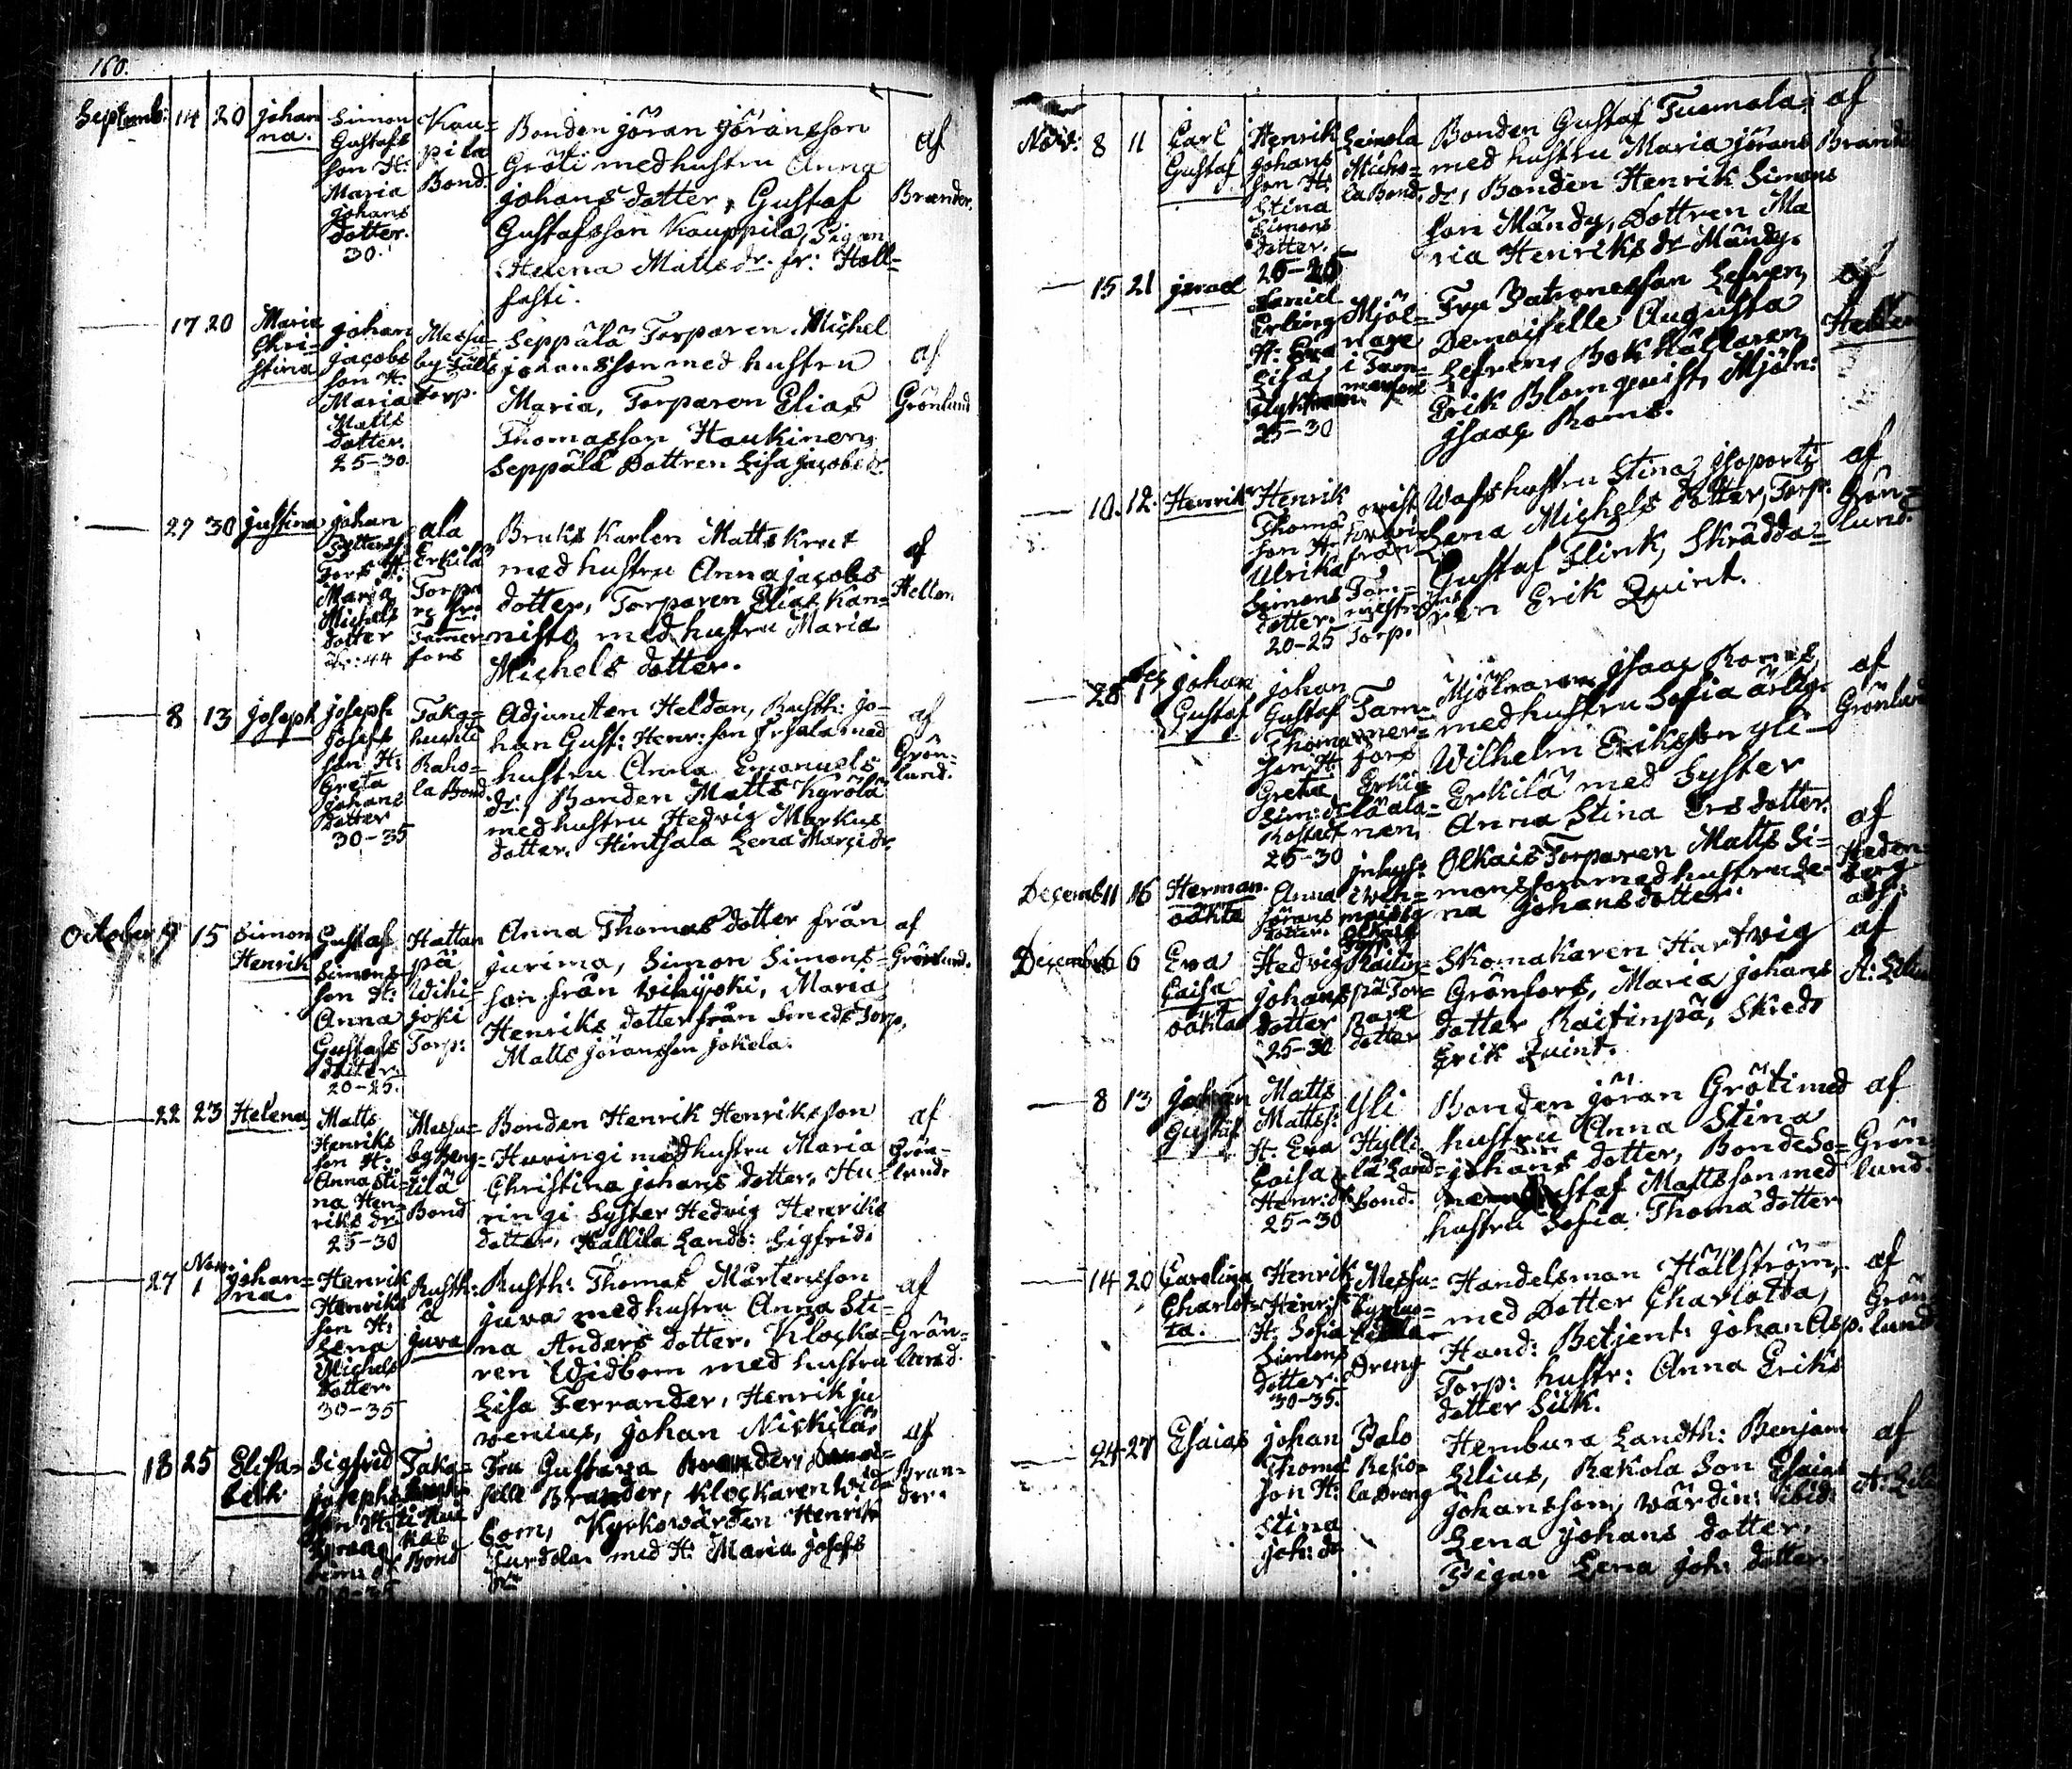 160.
Septemb: 14 20 Johan
na.
Simon
Gustafs
son H:
Maria
Johans
dotter.
30.
Kau=
pila
Bond.
Bonden Jöran Jöransson
Gröti med hustru Anna
Johans dotter, Gustaf
Gustafsson Kauppila, Pigan
Helena Matts dr. fr: Holl=
fasti.
af
Brander.
17 20 Maria
Chri=
stina
Johan
Jacobs
son H:
Maria
Matts
dotter.
25-30.
Messu=
by
Torp.
Seppälä Torparen Michel
Johansson med hustru
Maria, Torparen Elias
Thomasson Haukinen,
Seppälä Dottren Lisa Jacobs dr.
af
Grönlund
27 30 Justina
Johan
H:
Maria
Michels
dotter
44
ala
Erkilä
Torpa
re fr:
Tamer
fors
Bruks Karlen Matts Kreet
med hustru Anna Jacobs
dotter, Torparen Elias Kan=
nisto med hustru Maria
Michels dotter.
af
Hellen
8 13 Joseph
Joseph
Josefs
son H:
Greta
Johans
dotter
30-35
Taka=
huchti
Raho=
la Bond
Adjuncten Heldan, Rusth: Jo=
han Gust: Henr: son med
hustru Anna Emanuels
dr, Bonden Matts Kyrölä
med hustru Hedvig Markus
dotter. Hintsala Lena Marci dr.
af
Grön=
lund.
October 9 15 Simon
Henrik
Gustaf
Simons=
son H:
Anna
Gustafs
dotter.
20-25.
Hattan
pä
Wihi=
joki
Torp:
Anna Thomas dotter från
Jurima, Simon Simons=
son från Wihijoki, Maria
Henriks dotter från Smeds Torp,
Matts Jöransson Jokela.
af
Grönlund.
22 23 Helena
Matts
Henriks
son H:
Anna Sti=
na Hen=
riks dr
25-30
Messu=
by Beng=
tilä
Bond
Bonden Henrik Henriksson
Huringi med hustru Maria
Christina Johans dotter, Hu=
ringi Syster Hedvig Henriks
dotter, Hallila Landb: Sigfrid.
af
Grön=
lund.
27 Nov. 1 Johan=
na.
Henrik
Henriks
son H:
Lena
Michels
dotter.
30-35
Rusth:
å
Juva
Rusth: Thomas Mårtensson
Juva med hustru Anna Sti=
na Anders dotter. Klocka=
ren Widbom med hustru
Lisa Ferrander, Henrik Ju
venius, Johan Nickilä,
af
Grön=
lund.
18 25 Elisa=
beth
Sigfrid
Josephs
son H:
Taka=
Bond
Fru Gustava Brander, Demoi=
selle Brander, Klockaren Wid=
bom, Kyrkowärden Henrik
med H: Maria Josefs
dr
af
Bran=
der.
Nov: 8 11 Carl
Gustaf
Henrik
Johans
son H:
Stina
Simons
dotter.
25-26
Leinola
Mucko=
la Bond.
Bonden Gustaf Tuomola
med hustru Maria Jörans
dr, Bonden Henrik Simons
son Mändy, Dottren Ma
ria Henriks dr Mändy.
af
Brander
15 21 Israel
Daniel
Erling
H: Eva
Lisa
25-30
Mjöl=
nare
i Tam=
merfors
Fru Patronessan Lefren,
Demoiselle Augusta
Lefren, Bokhållaren
Erik Blomqvist, Mjöln:
Isaac Roms.
af
Hellen
10. 12. Henrik
Henrik
Thoma
son H:
Ulrika
Simons
dotter.
20-25
från
Torp.
hustru Stina
Lena Michels dotter, Torp:
Gustaf Flink, Skrädda=
ren Erik Quint.
af
Grön=
lund.
28 1 Johan
Gustaf
Johan
Gustaf
Thomas
son H:
Greta
Sim: dr
25-30
Tam=
mer=
fors
Erki=
lä
Mjölnaren Isaac Roms
med hustru Sofia
Wilhelm Eriksson Yli=
Erkilä med Syster
Anna Stina Ers dotter.
af
Grönlund
Decemb: 11 16 Herman
oäkta
Anna
Jörans
dotter.
Inhys:
Olkais Torparen Matts Si=
monsson med hustru Le=
na Johans dotter.
af
Heden=
berg
adj:
December 6 6 Eva
Caisa
oäkta
Hedvig
Johans
dotter
25-30
Raitin=
pä Tor=
pare
dotter
Skomakaren Hartvig
Grönfors, Maria Johans
dotter Raitinpä, Skredr
Erik Quint.
af
A: Lilius
8 13 Johan
Gustaf
Matts
Matts:
H: Eva
Caisa
Henr: dr
25-30
Yli
Hylli
lä Land=
bond.
Bonden Jöran Gröti med
hustru Anna Stina
Johans dotter, Bonde So=
nen Gustaf Mattsson med
hustru Sofia Thoma dotter
af
Grön
lund.
14 20 Carolina
Charlot=
ta.
Henrik
Henriks
H: Sofia
Simons
dotter.
30-35.
Messu=
by
Dreng
Handelsman Hällström,
med Dotter Charlotta,
Hand: Betjent: Johan Asp.
Torp: hustr: Anna Eriks
dotter Siik.
af
Grön
lund
24 27 Esaias
Johan
Thomas
son H:
Stina
Joh: dr
Palo
Reko=
la Dreng
Hembura Landth: Benjam
Lilius, Rekola Son Esaias
Johansson, värdin: ibid:
Lena Johans dotter,
Pigan Lena Joh: dotter.
af
A: Lilius